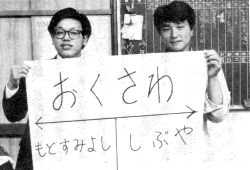 おくさわ
もとすみよし しぶや